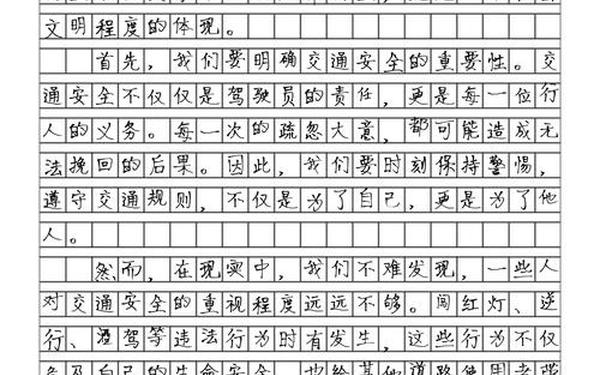 文明程度的体现。
首先，我们要明确交通安全的重要性。交
通安全不仅仅是驾驶员的责任，更是每一位行
人的义务。每一次的疏忽大意，都可能造成无
法挽回的后果。因此，我们要时刻保持警惕，
遵守交通规则，不仅是为了自己，更是为了他
人。
然而，在现实中，我们不难发现，一些人
对交通安全的重视程度远远不够。闯红灯、逆
行、酒驾等违法行为时有发生，这些行为不仅
危及自己的生命安全，也给其他道路使用者带